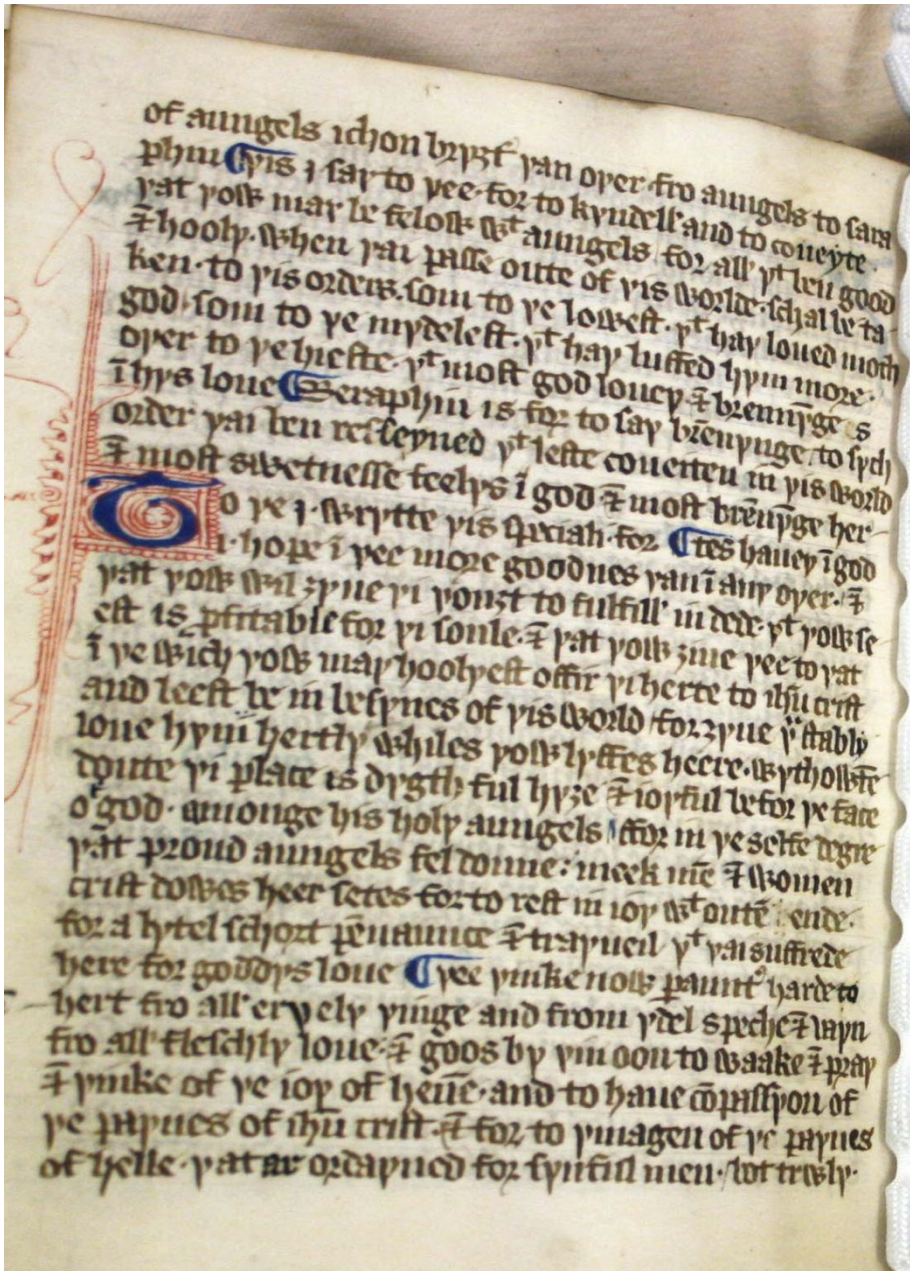 of aungels ichon bryȝt yan oyer fro aungels to sara
phin ¶ yis i say to yee for to kyndell and to coueyte
yat yow may be felow wt aungels for all yt ben good
⁊ hooly. when yai passe oute of yis worlde. schal be ta
ken. to yis orders. som to ye lowest. yt hay loued moch
god. som to ye mydelest. yt hay luffed hym more.
oyer to ye hieste. yt most god louey ⁊ brennyge s
ī hys loue ¶ Seraphin is for to say brēnynge. to sych
order yai ben resseyued yt leste coueiten in yis world
⁊ most swetnesse feelys ī god ⁊ most brēnyge her
To ye i wrytte yis speciali for ¶ tes hauey ī god
i hope ī yee more goodnes yan ī any oyer. ⁊
yat yow wil ȝyue yi yoȝt to fulfill in dede. yt yow se
est is pfitable for yi soule. ⁊ yat yow ȝiue yee to yat
ī ye wich yow may hoolyest offir yi herte to ihū crist
and leest be in besynes of yis world for ȝyue yu stably
loue hym hertly whiles yow lyffes heere. wythowtē
doute yi place is dygth ful hyȝe ⁊ ioyful befor ye face
of god. amonge his holy aungels ffor in ye selfe degre
yat proud aungels fel donne: meek mē ⁊ women
crist dowes heer setes for to rest in ioy wt outē ende.
for a lytel schort pēnaunce ⁊ trayueil yt yai suffrede
here for goddys loue ¶ yee yinke now paunt' harde to
hert fro all eryely yinge and from ydel speche ⁊ vayn
fro all fleschly loue. ⁊ goos by yin oon to waake ⁊ pray
⁊ yinke of ye ioy of heuē. and to haue cōpassyon of
ye paynes of ihū crist. ⁊ for to ymagen of ye paynes
of helle. yat ar ordayned for synful men. bot trewly.